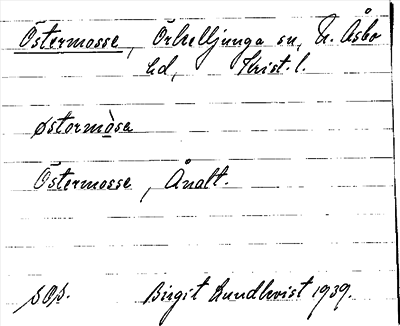 Östermosse, Örkelljunga sn, N. Åsbo
hd, Krist. l.
østormòsa
Östermosse, Ånalt.
Birgit Lundkvist 1939.